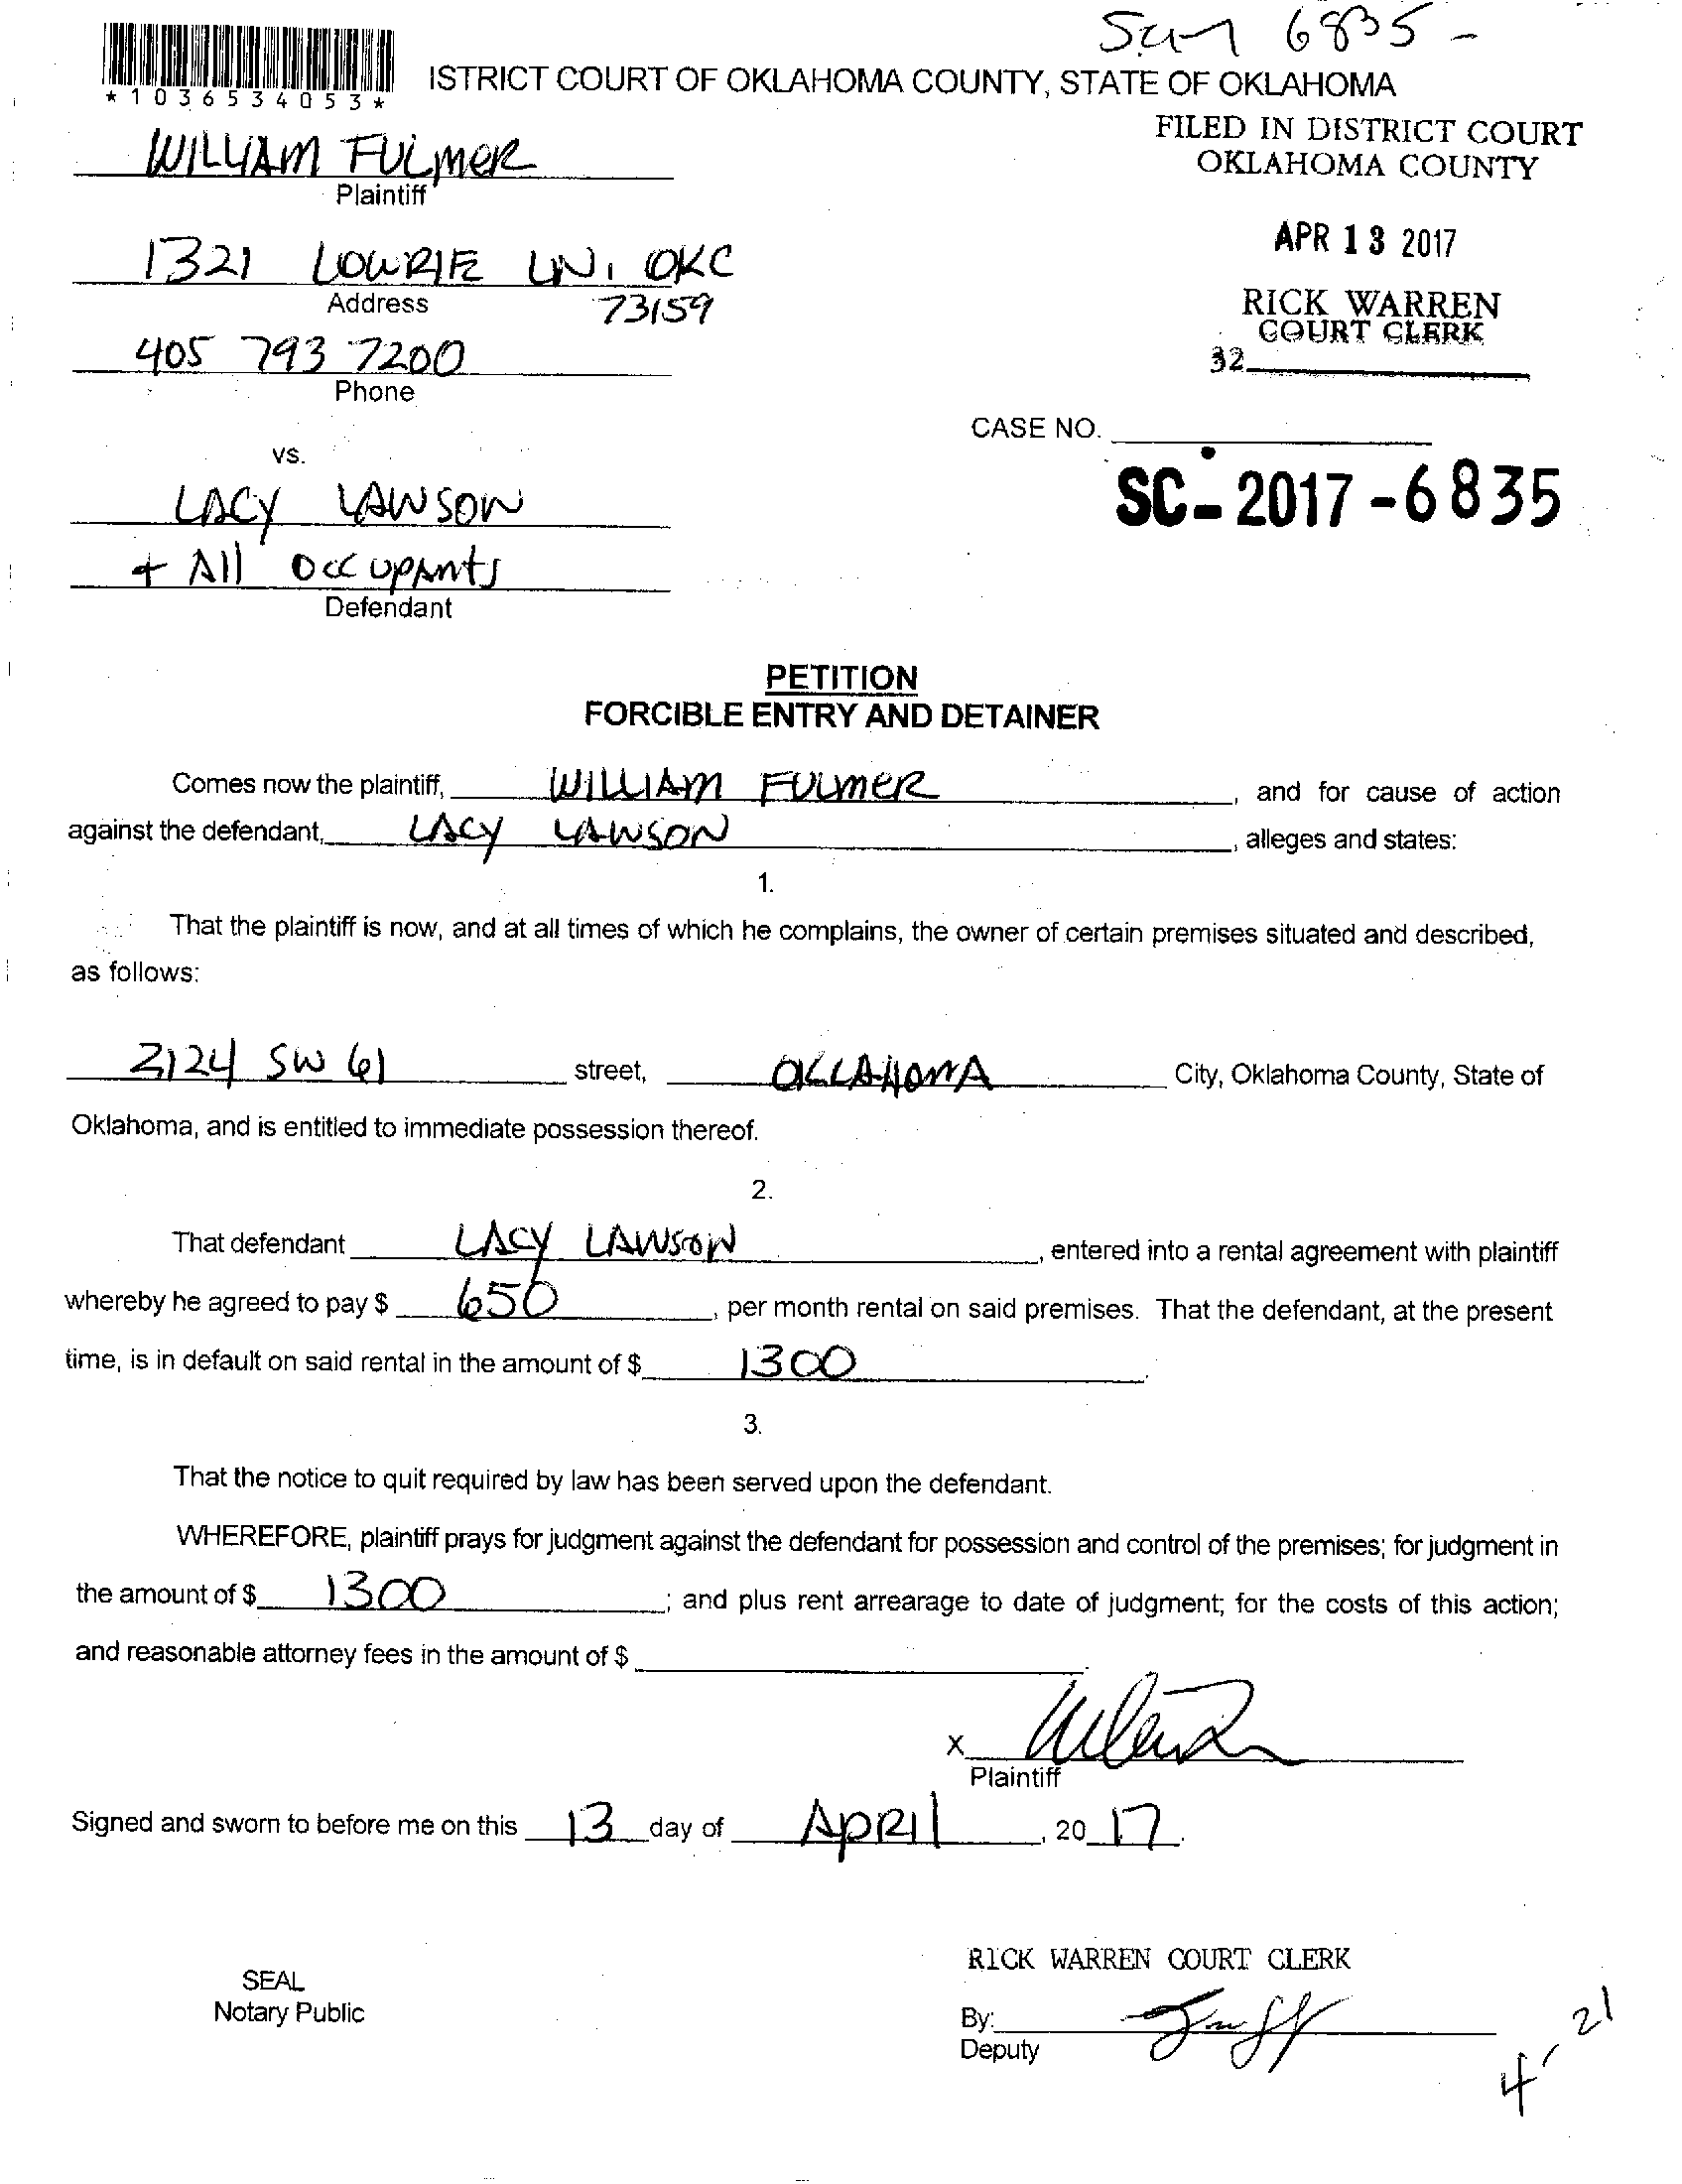 6835 -
*1036534053*
ISTRICT COURT OF OKLAHOMA COUNTY, STATE OF OKLAHOMA
FILED IN DISTRICT COURT
OKLAHOMA COUNTY
WILLIAM FULMER
Plaintiff
APR 13 2017
1321 LOWRIE LN. OKC
Address 73159
RICK WARREN
COURT CLERK
32
405 793 7200
Phone
CASE NO.
vs.
SC-2017-6835
LACY LAWSON
+ All OccupAnts
Defendant
PETITION
FORCIBLE ENTRY AND DETAINER
Comes now the plaintiff, WILLIAM FULMER, and for cause of action
against the defendant, LACY LAWSON, alleges and states:
1.
That the plaintiff is now, and at all times of which he complains, the owner of certain premises situated and described,
as follows:
2124 SW 61 street, OKLAHOMA City, Oklahoma County, State of
Oklahoma, and is entitled to immediate possession thereof.
2.
That defendant LACY LAWSON, entered into a rental agreement with plaintiff
whereby he agreed to pay $ 650, per month rental on said premises. That the defendant, at the present
time, is in default on said rental in the amount of $ 1300.
3.
That the notice to quit required by law has been served upon the defendant.
WHEREFORE, plaintiff prays for judgment against the defendant for possession and control of the premises; for judgment in
the amount of $ 1300; and plus rent arrearage to date of judgment; for the costs of this action;
and reasonable attorney fees in the amount of $ .
X
Plaintiff
Signed and sworn to before me on this 13 day of APRIl, 20 17.
RICK WARREN COURT CLERK
SEAL
Notary Public
By:
Deputy
4-21